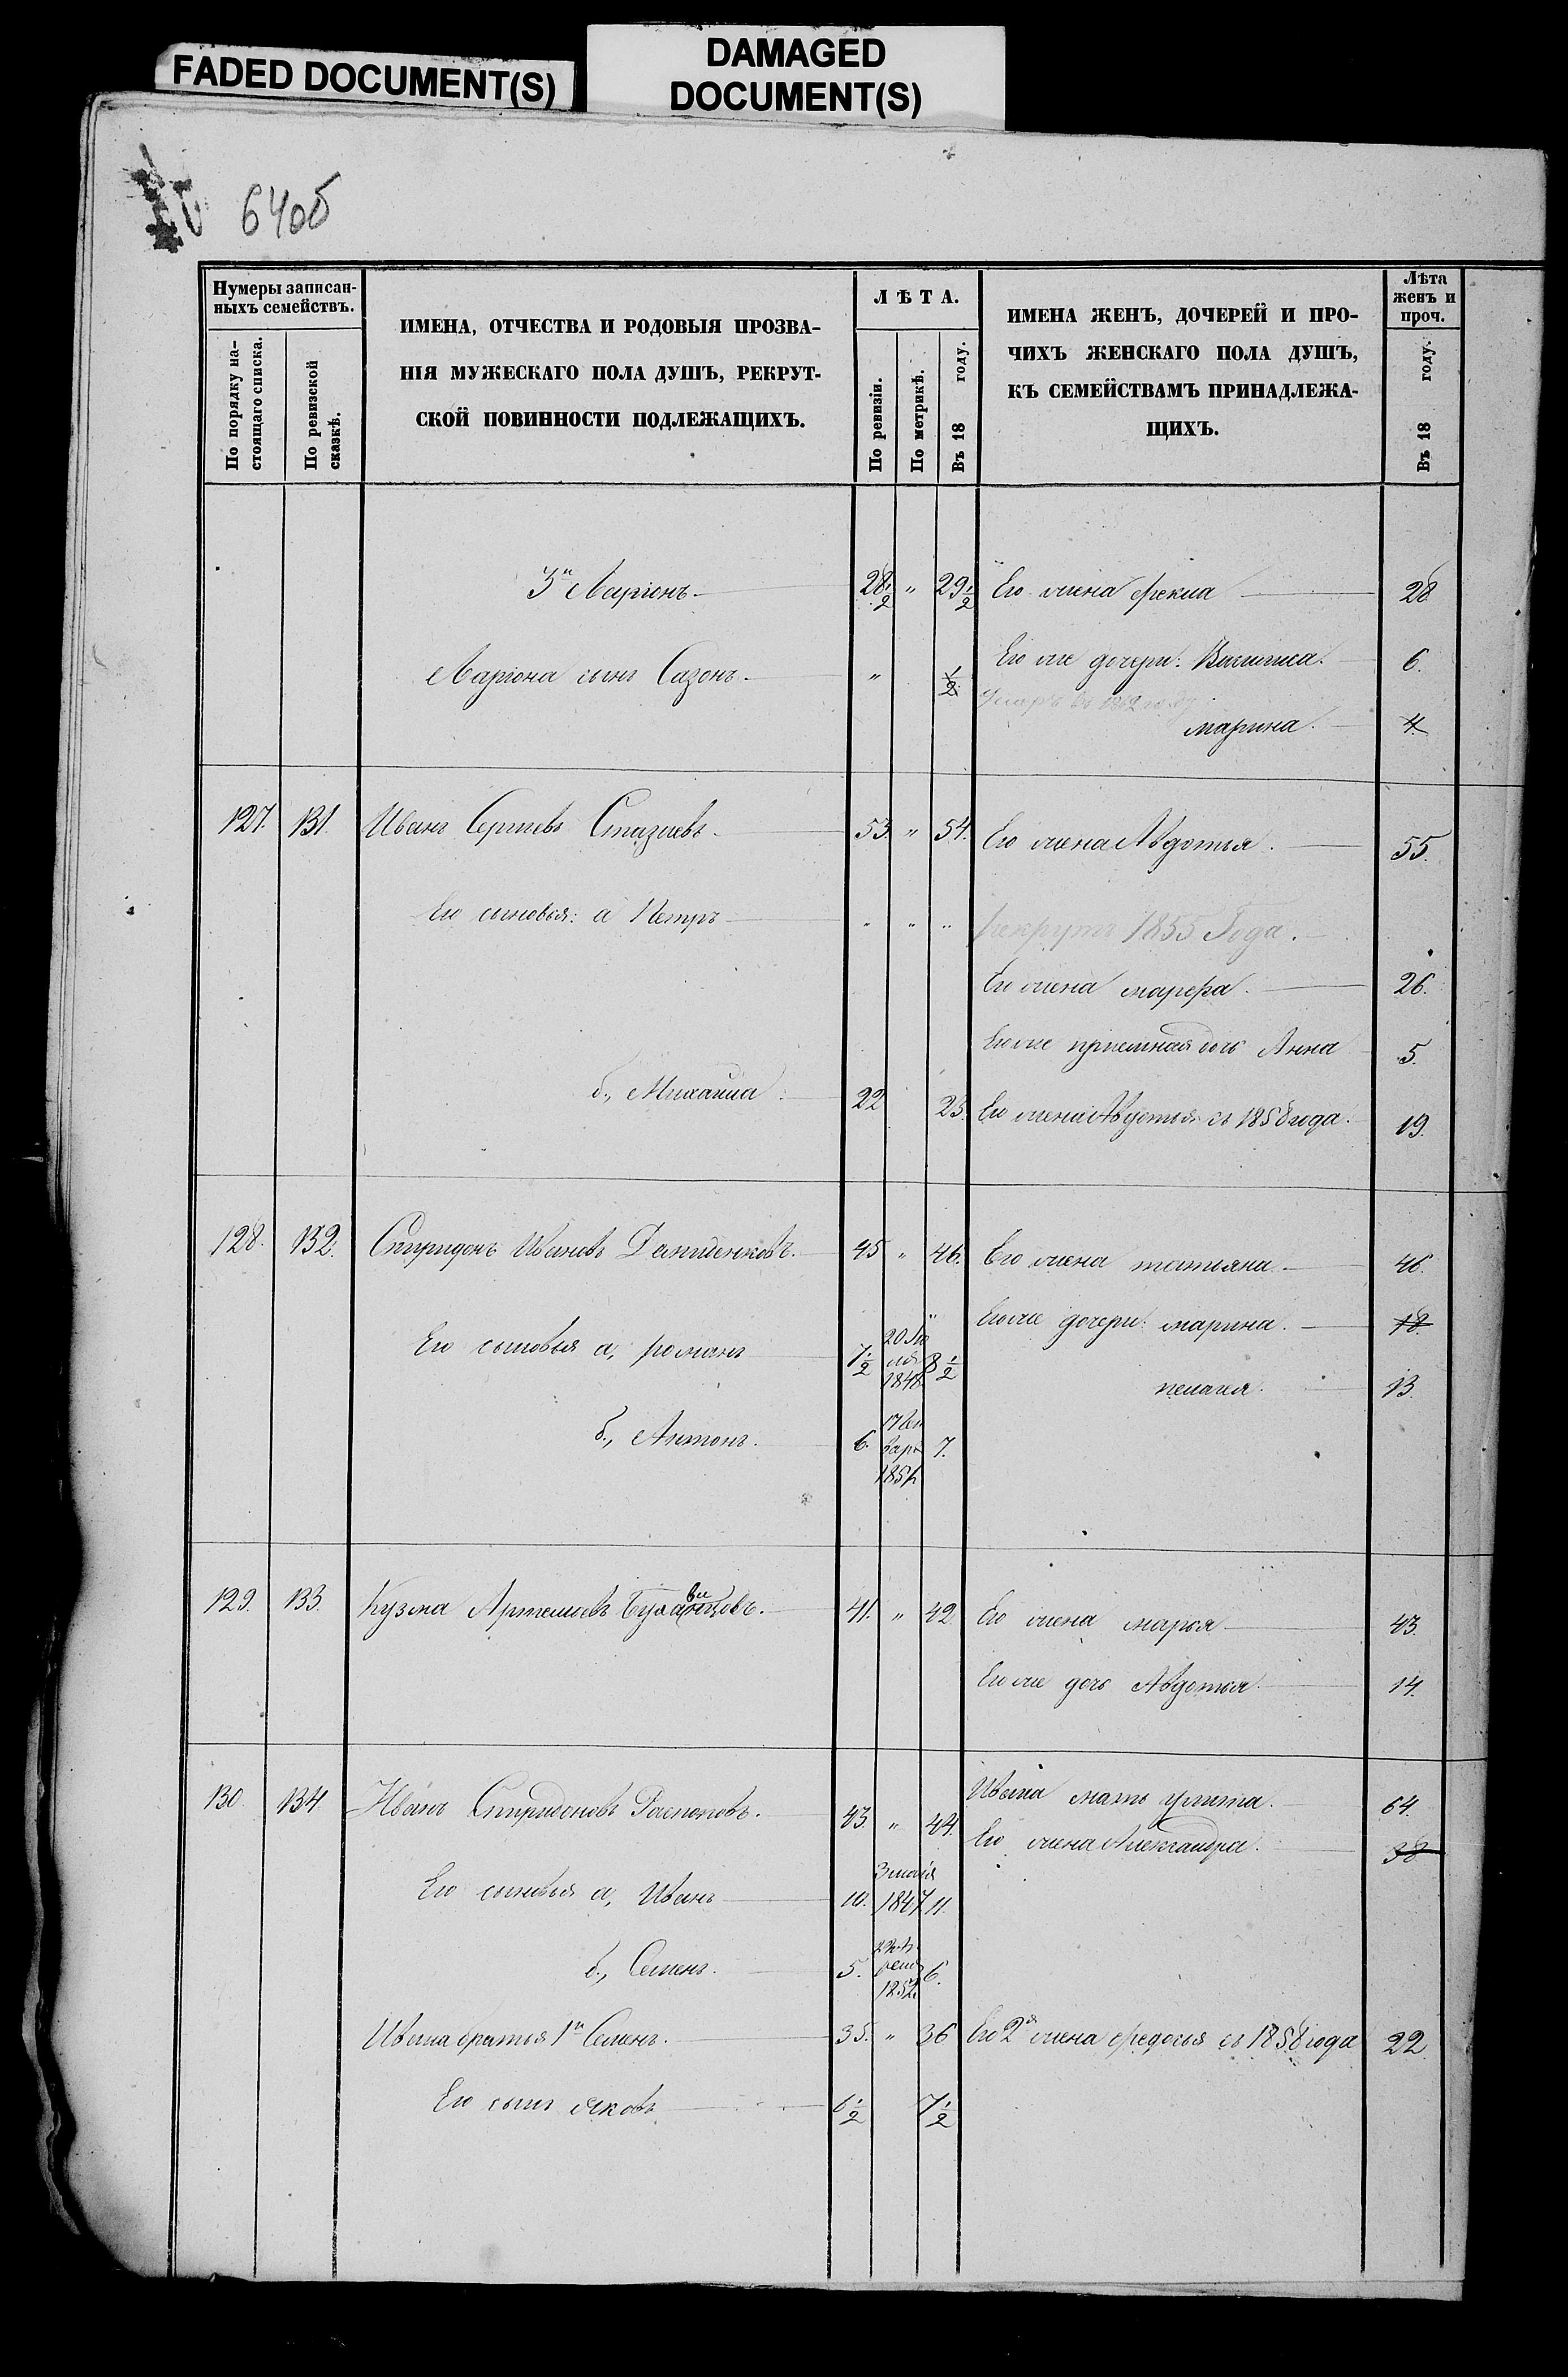 FADED DOCUMENT(S)
DAMAGED
DOCUMENT(S)
64об
Нумеры записан-
ныхъ семействъ.
По порядку на-
стоящаго списка.
По ревизской
сказкѣ.
ИМЕНА, ОТЧЕСТВА И РОДОВЫЯ ПРОЗВА-
НІЯ МУЖЕСКАГО ПОЛА ДУШЪ, РЕКРУТ-
СКОЙ ПОВИННОСТИ ПОДЛЕЖАЩИХЪ.
ЛѢТА.
По ревизіи.
По метрикѣ.
Въ 18 году.
ИМЕНА ЖЕНЪ, ДОЧЕРЕЙ И ПРО-
ЧИХЪ ЖЕНСКАГО ПОЛА ДУШЪ,
КЪ СЕМЕЙСТВАМЪ ПРИНАДЛЕЖА-
ЩИХЪ.
Лѣта
женъ и
проч.
Въ 18 году.
3й Ларіонъ 28 1/2 " 29 1/2 Его жена Фекла 28
Ларіона сынъ Сазонъ. " 1/2 Его же дочери: Василиса. 6.
Умеръ въ 1862 году
марина. 4.
127. 131. Иванъ Сергѣевъ 53. " 54. Его жена Авдотья. 55.
Его сыновья: а Петръ " " " рекрутъ 1855 Года.
Его жена марфа. 26.
Его же пріемная дочь Анна 5.
б., Михаила 22 23. Его жена Авдотья съ 1858 года. 19.
128. 132. Спиридонъ Ивановъ 45 " 46. Его жена татьяна. 46.
Его сыновья а, романъ 7 1/2 20 Ію
ля
1848 8 1/2 Его же дочери: марина. 18.
пелагея. 13.
б., Антонъ. 6. 17 Ян
варя
1851 7.
129. 133. Кузма Артемовъ 41. " 42 Его жена марья 43.
Его же дочь Авдотья. 14.
130. 134. Иванъ Спиридоновъ Распоповъ. 43. " 44. Ивана мать улита. 64.
Его жена Александра. 38
Его сыновья а, Иванъ 10. 3 маія
1847 11.
б., Семенъ. 5. 1852 6.
Ивана братья 1й Семенъ. 35. " 36 Его 2я жена федосья съ 1858 года 22.
Его сынъ яковъ 6 1/2 7 1/2